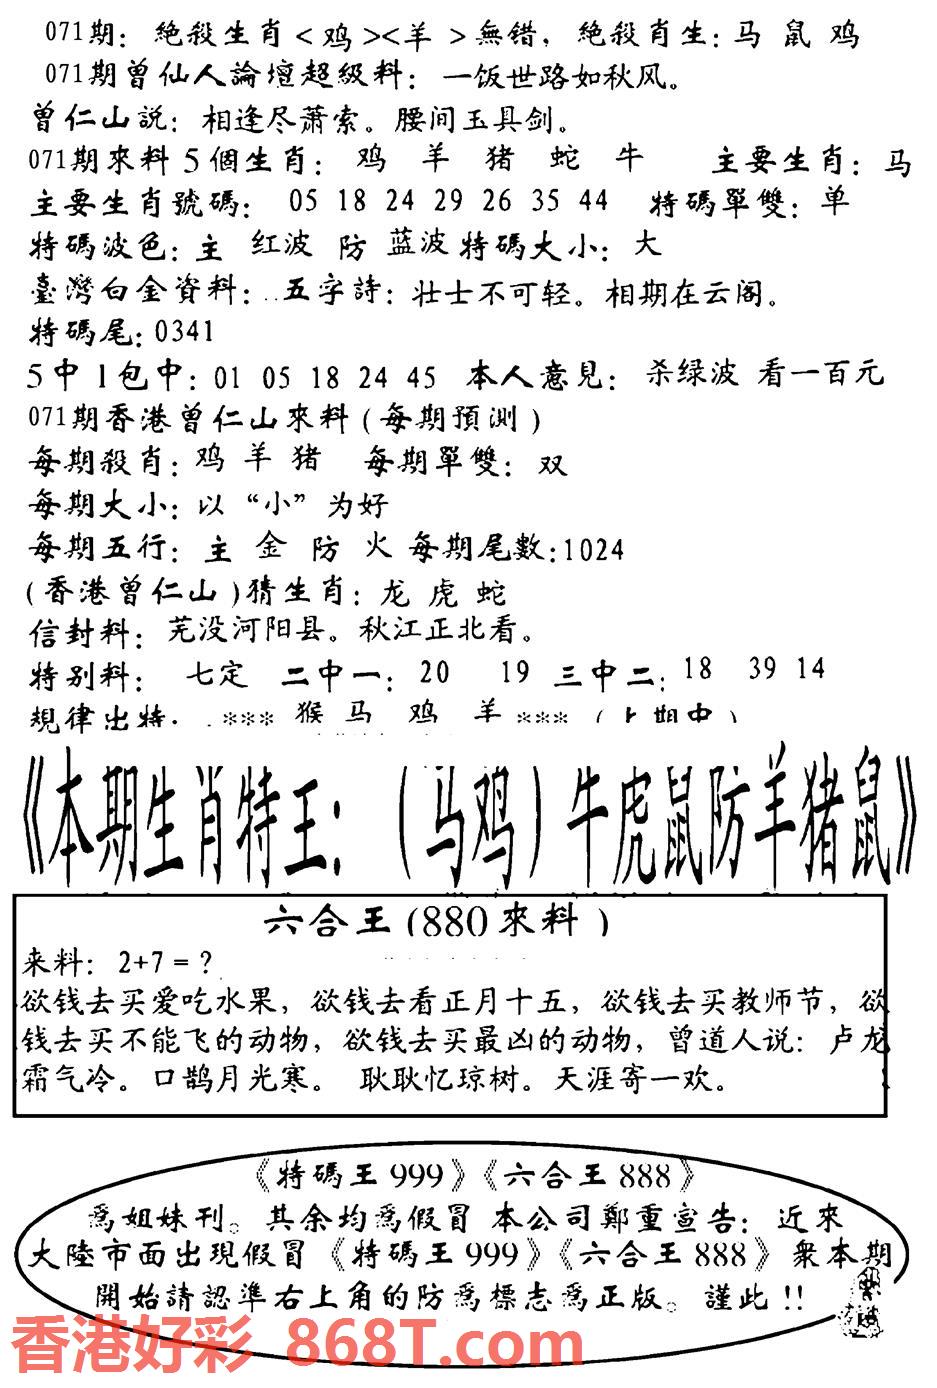 071期：絶殺生肖<鸡><羊>無错，絶殺肖生：马 鼠 鸡
071期曾仙人論壇超級料：一饭世路如秋风。
曾仁山説：相逢尽萧索。腰间玉具剑。
071期來料5個生肖：鸡 羊 猪 蛇 牛 主要生肖：马
主要生肖號碼：05 18 24 29 26 35 44 特碼單雙：单
特碼波色：主 红波 防 蓝波 特碼大小：大
臺灣白金資料：五字詩：壮士不可轻。相期在云阁。
特碼尾：0341
5中1包中：01 05 18 24 45 本人意見：杀绿波 看一百元
071期香港曾仁山來料(每期預測)
每期殺肖：鸡 羊 猪 每期單雙：双
每期大小：以“小”为好
每期五行：主 金 防 火 每期尾數：1024
(香港曾仁山)猜生肖：龙 虎 蛇
信封料：芜没河阳县。秋江正北看。
特别料：七定 二中一：20 19 三中二：18 39 14
規律出特：*** 猴 马 鸡 羊 ***（上期中）
《本期生肖特王：（马鸡）牛虎鼠防羊猪鼠》
六合王(880來料)
来料：2+7=?
欲钱去买爱吃水果，欲钱去看正月十五，欲钱去买教师节，欲
钱去买不能飞的动物，欲钱去买最凶的动物，曾道人说：卢龙
霜气冷。口鹊月光寒。 耿耿忆琼树。天涯寄一欢。
《特碼王999》《六合王888》
爲姐妹刊。其余均爲假冒 本公司鄭重宣告：近來
大陸市面出現假冒《特碼王999》《六合王888》衆本期
開始請認準右上角的防爲標志爲正版。謹此!!
香港好彩 868T.com